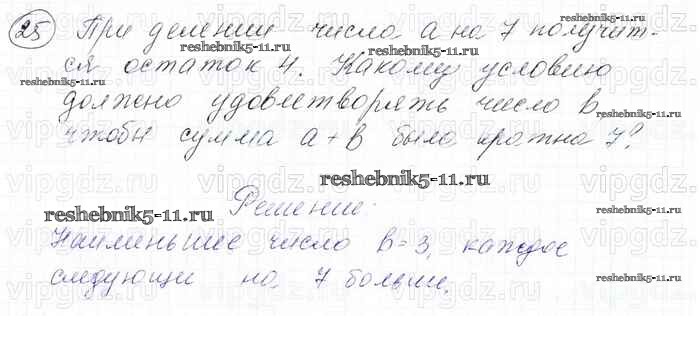 25 При делении числа a на 7 получит-
ся остаток 4. Какому условию
должно удовлетворять число b,
чтобы сумма a+b была кратна 7?
Решение.
Наименьшее число b=3, каждое
следующи на 7 больше.
reshebnik5-11.ru
reshebnik5-11.ru
reshebnik5-11.ru
reshebnik5-11.ru
reshebnik5-11.ru
reshebnik5-11.ru
vipgdz.ru